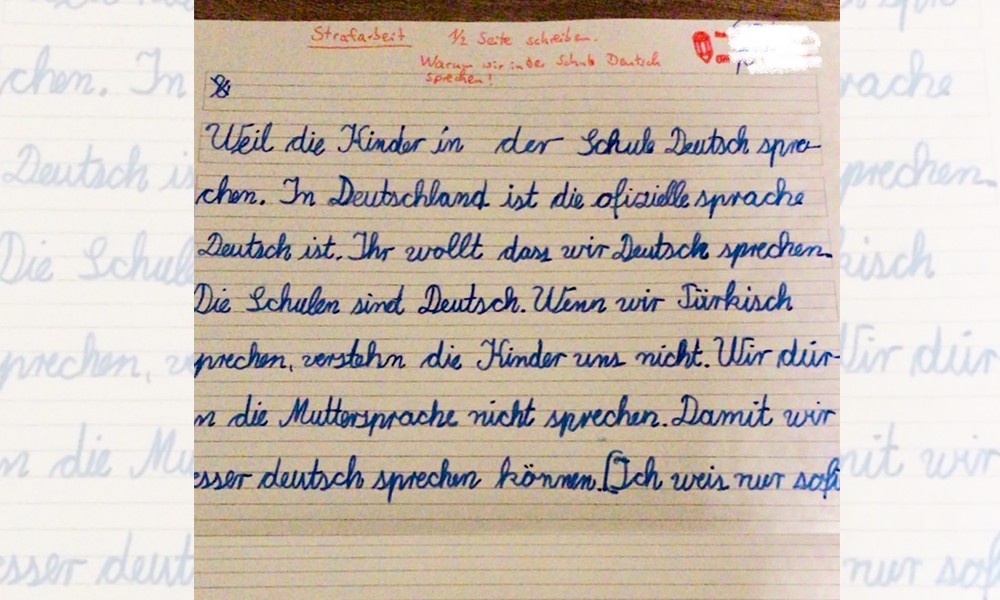 Strafarbeit 1/2 Seite schreiben.
Warum wir in der Schule Deutsch
sprechen!
Weil die Kinder in der Schule Deutsch spre-
chen. In Deutschland ist die ofizielle sprache
Deutsch ist. Ihr wollt dass wir Deutsch sprechen.
Die Schulen sind Deutsch. Wenn wir Türkisch
prechen, verstehn die Kinder uns nicht. Wir dür-
n die Muttersprache nicht sprechen. Damit wir
esser deutsch sprechen können. [Ich weis nur sofi